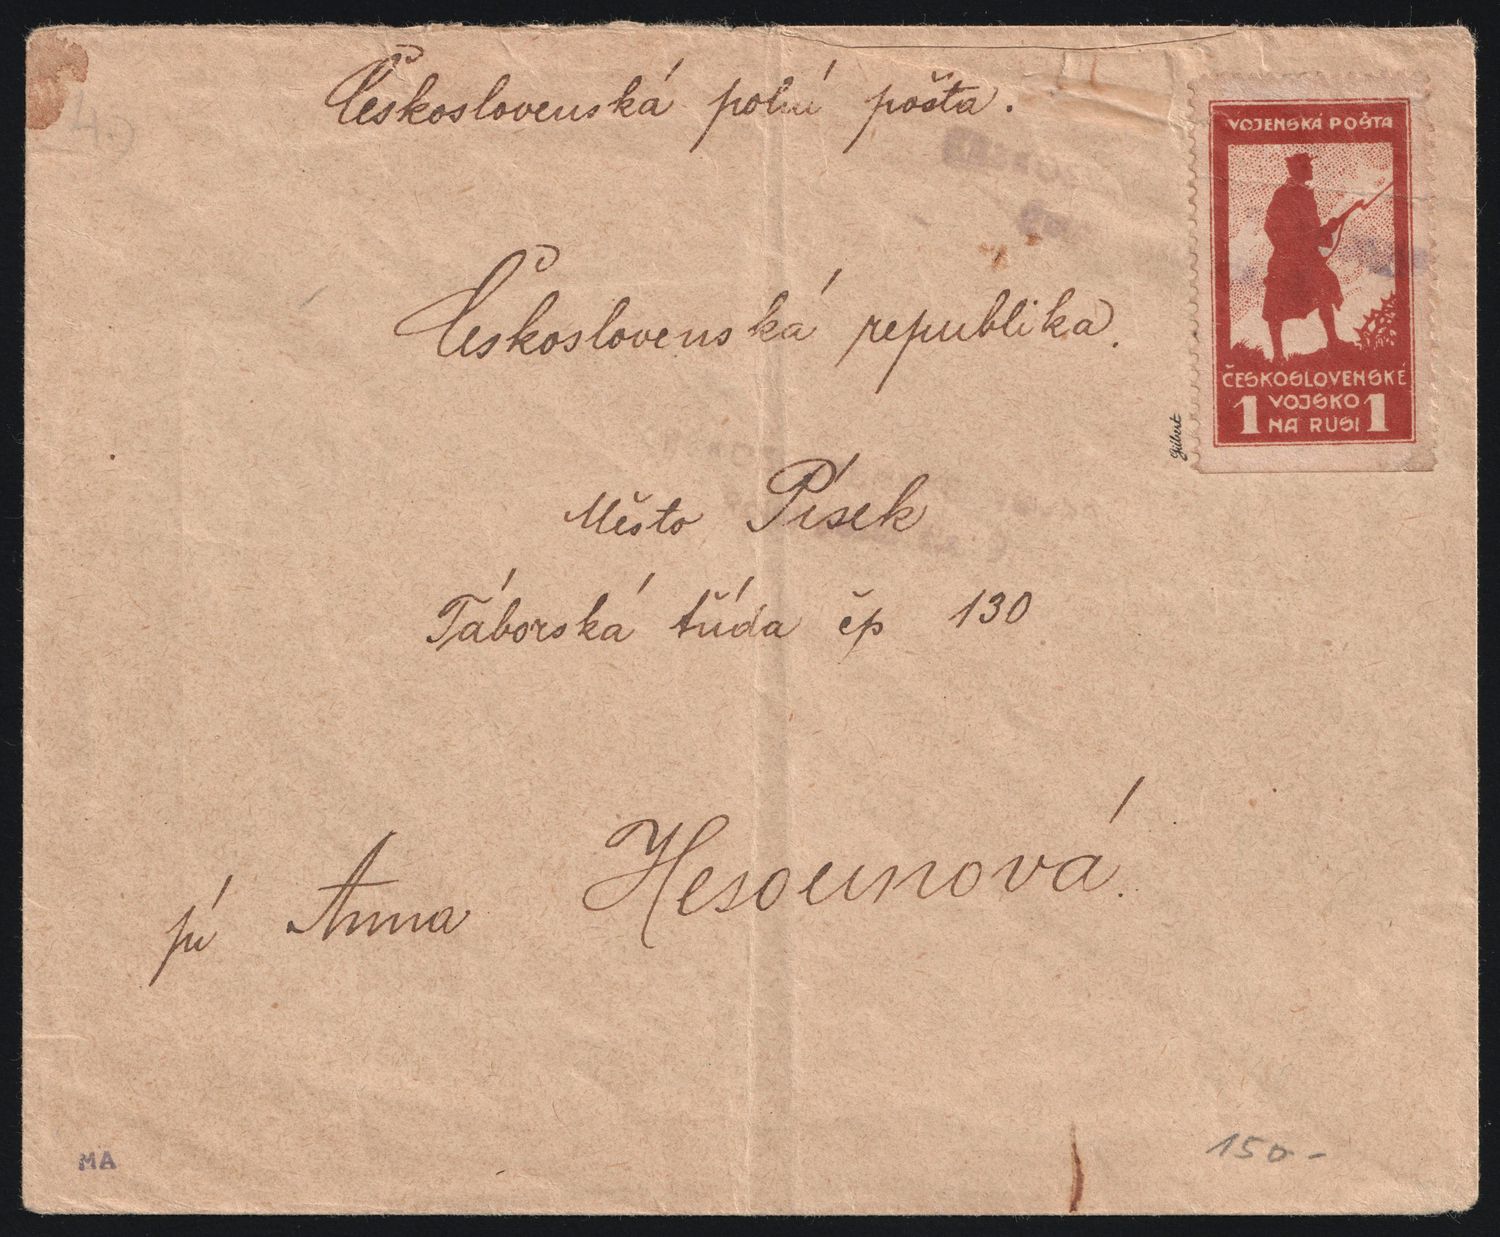 Československá polní pošta.
4.)
VOJENSKÁ POŠTA
ČESKOSLOVENSKÉ
1 VOJSKO 1
NA RUSI
Gilbert
Československá republika.
Město Písek
Táborská třída čp 130
Anna Hesounová.
MA
150-